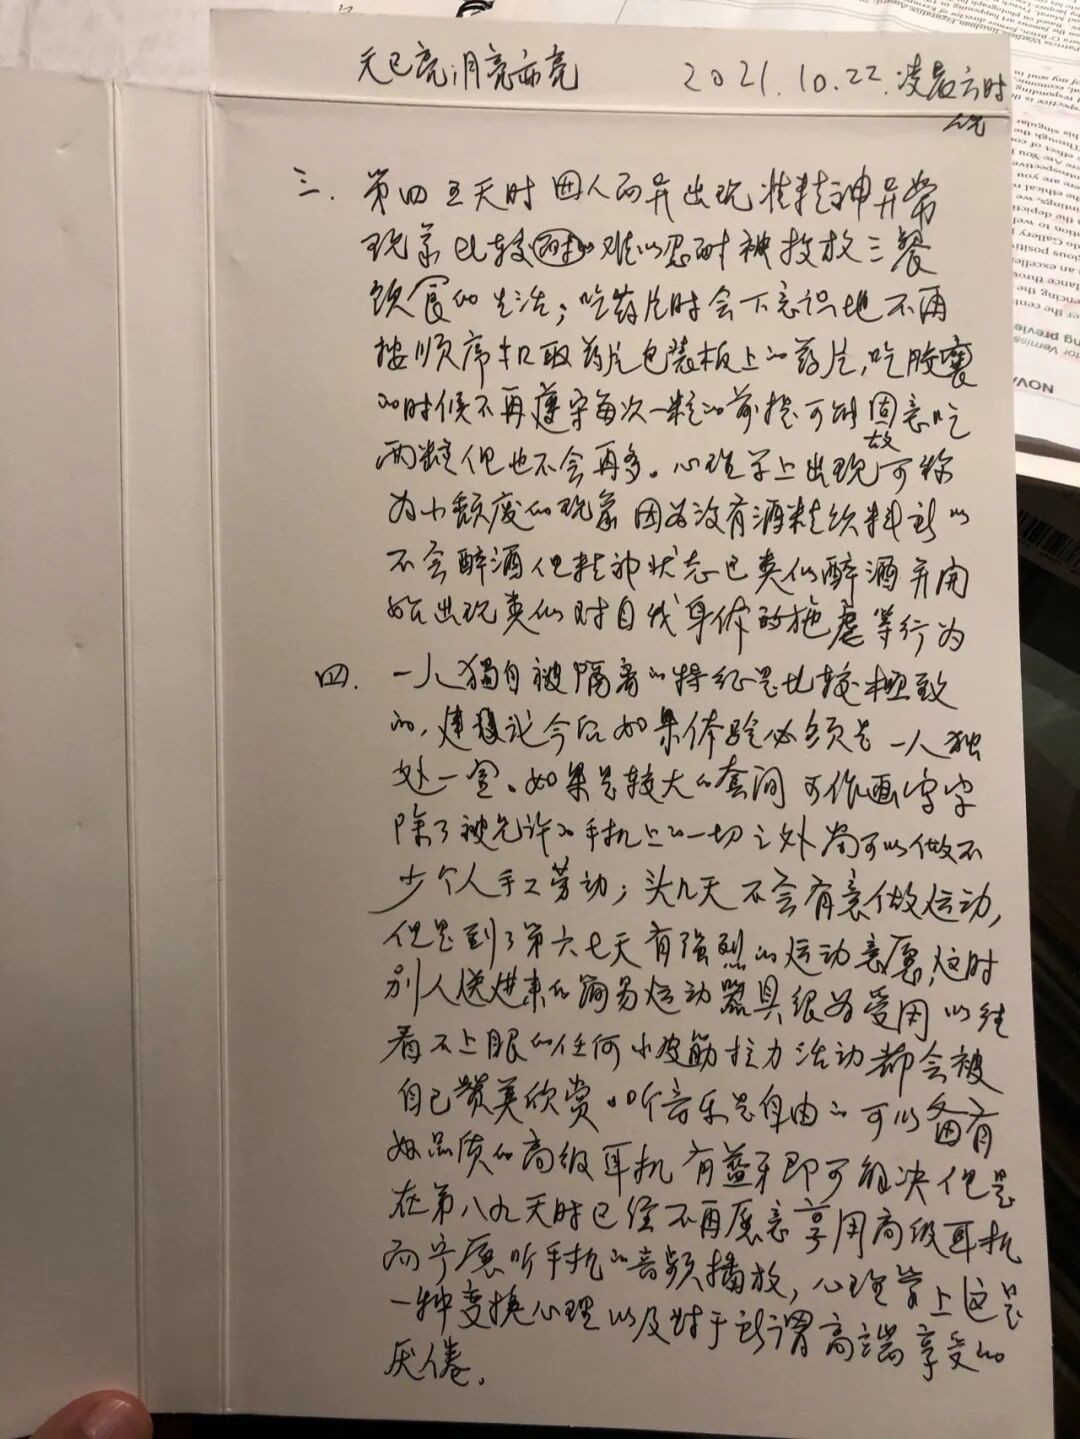 天已亮,月亮亦亮 2021.10.22.凌晨六时
三. 第四五天时 因人而异出现些精神异常
现象 比较 难以忍耐被投放三餐
饮食的生活;吃药片时会下意识地不再
按顺序扣取药片包装板上的药片,吃胶囊
的时候不再遵守每次一粒的前提可能固意吃
故
两粒但也不会再多。心理学上出现可称
为小颓废的现象 因为没有酒精饮料所以
不会醉酒但精神状态已类似醉酒并开
始出现类似对自我身体的施虐等行为
四. 一人独自被隔离的特征是比较极致
的,建议今后如果体验必须是一人独
处一室。如果是较大的套间 可作画写字
除了被允许的手机上的一切之外尚可以做不
少个人手工劳动;头几天不会有意做运动,
但是到了第六七天有强烈的运动意愿,这时
别人送进来的简易运动器具很为受用以往
看不上眼的任何小皮筋拉力活动都会被
自己赞美欣赏。听音乐是自由的可以备有
好品质的高级耳机 有蓝牙即可解决但是
在第八九天时已经不再愿意享用高级耳机
而宁愿听手机的音频播放,心理学上这是
一种变换心理以及对于所谓高端享受的
厌倦。
NOVA